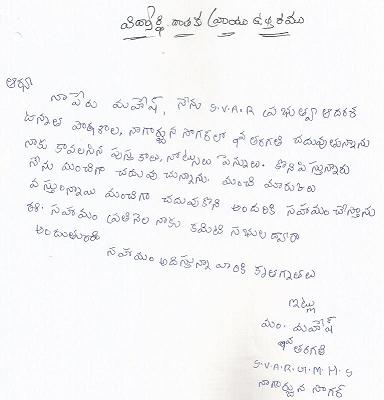 విద్యార్థి దాతకు వ్రాయు ఉత్తరము
ఆర్యా
నా పేరు మహేష్, నేను S.V.A.R ప్రభుత్వా ఆదర్శ
ఉన్నత పాఠశాల, నాగార్జున సాగర్‌లో తరగతి చదువుతున్నాను
నాకు కావలసిన పుస్తకాలు, నోట్సులు పెన్నులు. కొనిపిస్తున్నారు
నేను మంచిగా చదువు చున్నాను. మంచి మారుకులు
వస్తున్నాయి మంచిగా చదువుకొని అందరికి సహాయం చేస్తాను
ఈ సహాయం ప్రతినెల నాకు కమిటి సభుల ద్వారా
అందుతుంది
సహాయం అదిస్తున్నా వారికి కృతజ్ఞాతలు
ఇట్లు
మం. మహేష్
తరగతి
S.V.A.R.G.M.H.S
నాగార్జున సాగర్